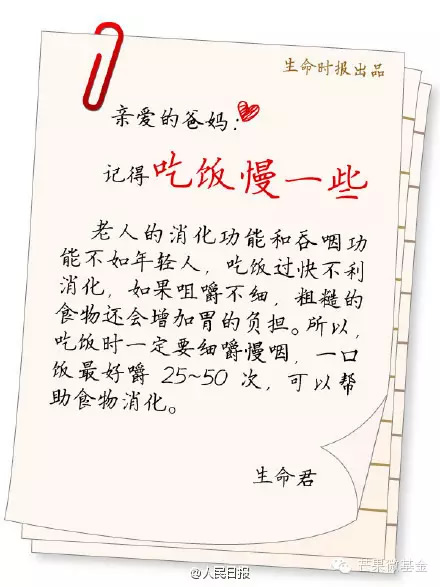 生命时报出品
亲爱的爸妈：
记得吃饭慢一些
老人的消化功能和吞咽功
能不如年轻人，吃饭过快不利
消化，如果咀嚼不细，粗糙的
食物还会增加胃的负担。所以，
吃饭时一定要细嚼慢咽，一口
饭最好嚼 25~50 次，可以帮
助食物消化。
生命君
@人民日报
芒果微基金